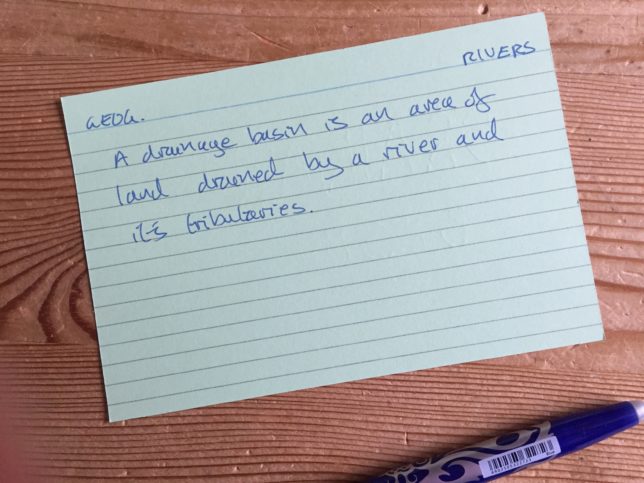 RIVERS
GEOG.
A drainage basin is an area of
land drained by a river and
it's tributaries.